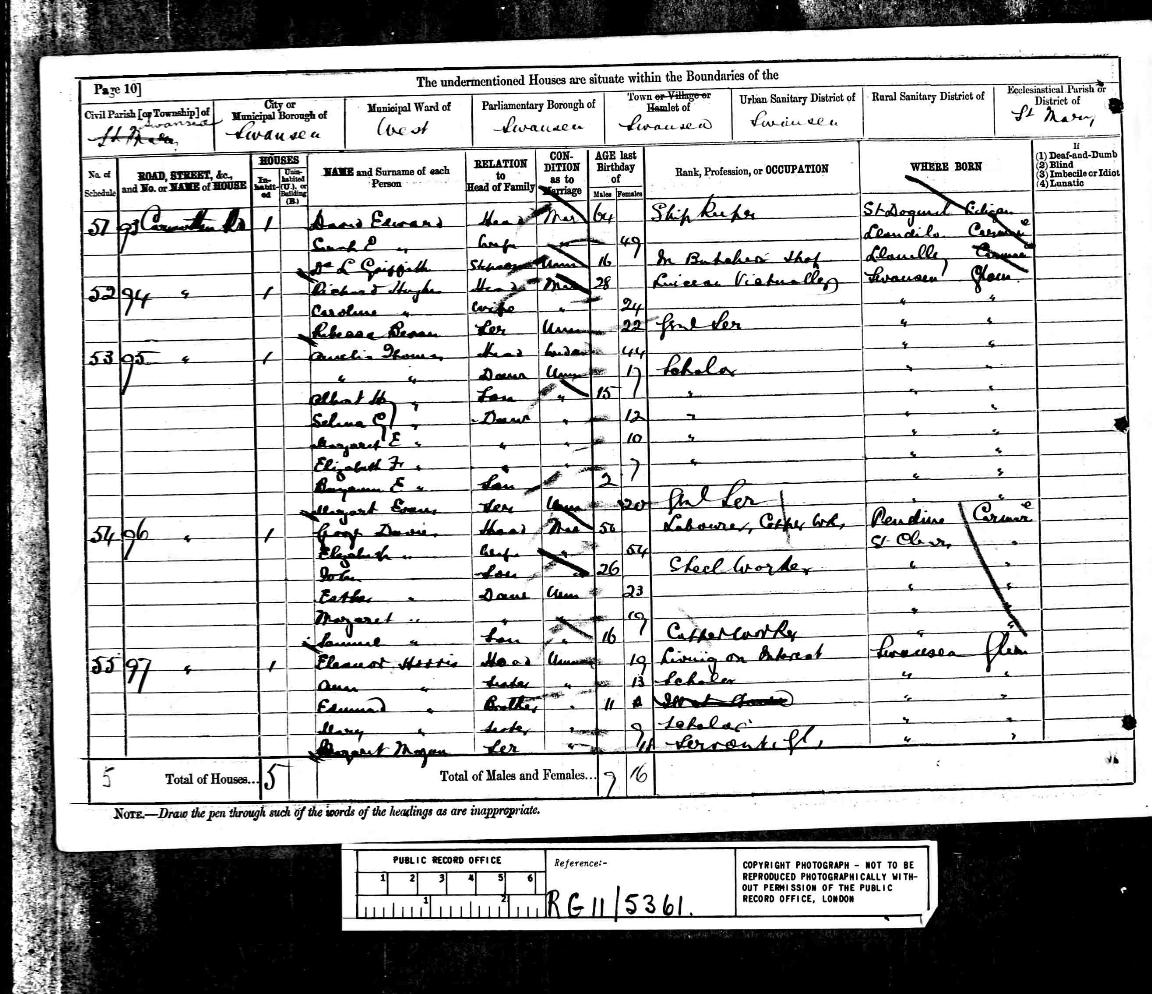 The undermentioned Houses are situate within the Boundaries of the
Page 10]
Civil Parish [or Township] of Swansea
City or Municipal Borough of Swansea
Municipal Ward of West
Parliamentary Borough of Swansea
Town or Village or Hamlet of Swansea
Urban Sanitary District of Swansea
Rural Sanitary District of
Ecclesiastical Parish or District of St Mary
No. of Schedule
ROAD, STREET, &c., and No. or NAME of HOUSE
HOUSES
Inhabited
Uninhabited (U.), or Building (B.)
NAME and Surname of each Person
RELATION to Head of Family
CONDITION as to Marriage
AGE last Birthday of
Males Females
Rank, Profession, or OCCUPATION
WHERE BORN
If
(1) Deaf-and-Dumb
(2) Blind
(3) Imbecile or Idiot
(4) Lunatic
51 93 1 David Edward Head Mar 64 Ship Keeper
Sarah E " Wife " 49 Llandilo
L Griffith Unm 16 Butcher Shop Llanelly
52 94 " 1 Richard Hughes Head Mar 28 Swansea Glam
Caroline " Wife " 24 " "
Rebecca Bevan Ser Unm 22 Genl Ser " "
53 95 " 1 Amelia Thomas Head 44 " "
" " Daur Unm 17 Scholar " "
Albert H " Son " 15 " " "
Selina G " Daur " 12 " " "
Margaret E " " " 10 " " "
Elizabeth " " 7 " " "
E " Son 2 " "
Margaret Evans Ser Unm 20 Genl Ser " "
54 96 " 1 George Davies Head Mar 56 Labourer, Copper Wk, Pendine
Elizabeth " Wife " 54 "
John Son 26 Steel Worker " "
Esther " Daur Unm 23 " "
Margaret " " 19 " "
Samuel " Son " 16 Copper Worker " "
55 97 " 1 Eleanor Harris Head Unm 19 Living on Interest Swansea Glam
Ann " Sister " 13 Scholar " "
Edmund " Brother " 11 " "
Mary " Sister " 9 Scholar " "
Margaret Morgan Ser " " "
5 Total of Houses... 5 Total of Males and Females... 9 16
NOTE.—Draw the pen through such of the words of the headings as are inappropriate.
PUBLIC RECORD OFFICE
1 2 3 4 5 6
1 2
Reference:-
RG 11/5361.
COPYRIGHT PHOTOGRAPH - NOT TO BE
REPRODUCED PHOTOGRAPHICALLY WITH-
OUT PERMISSION OF THE PUBLIC
RECORD OFFICE, LONDON